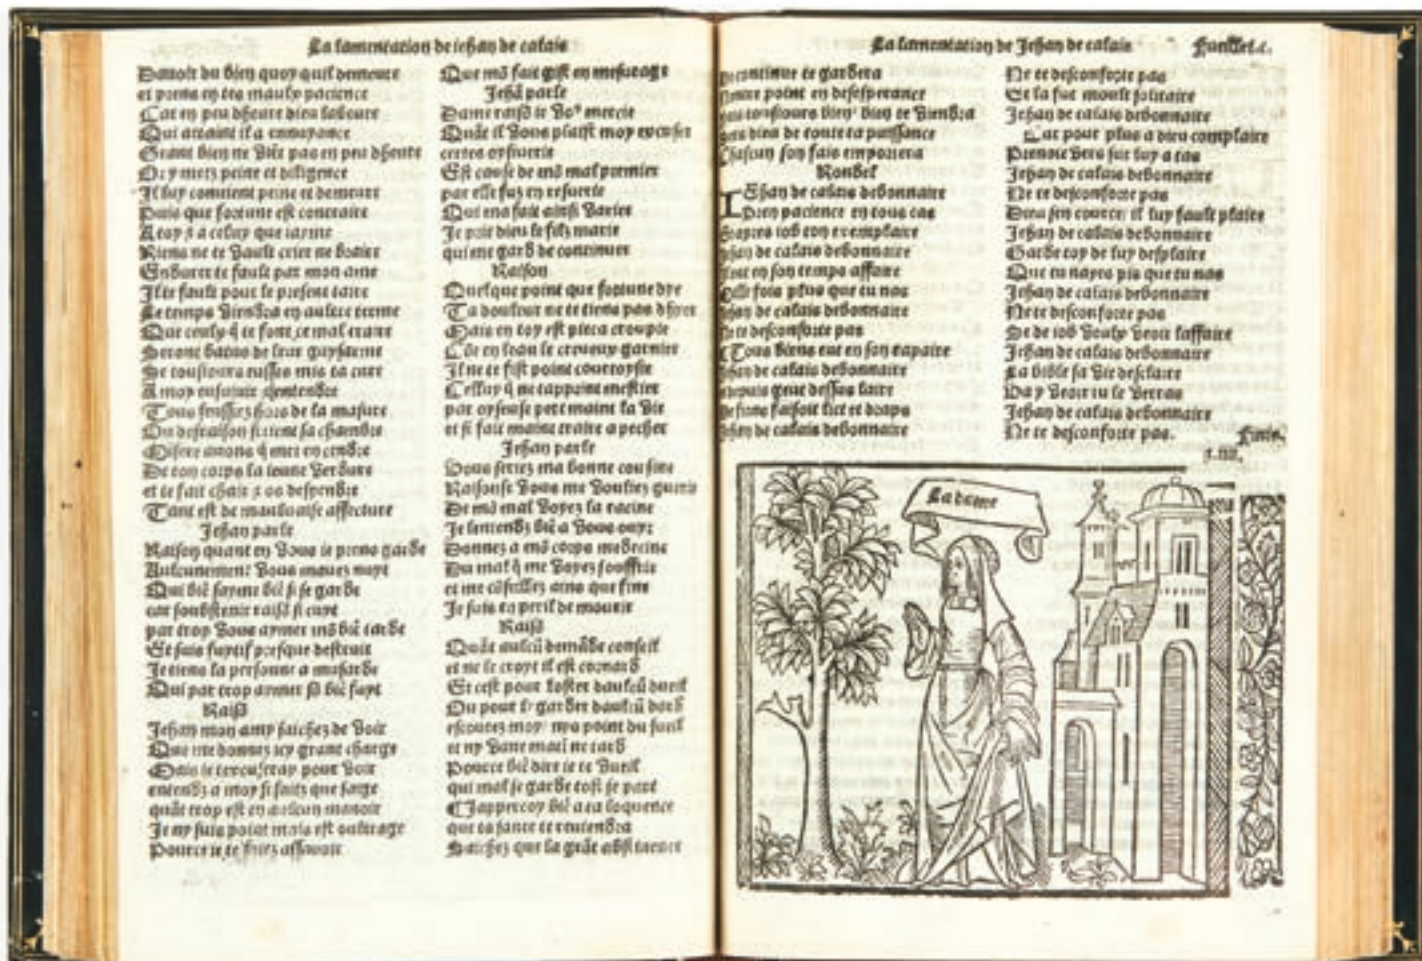 La lamentation de iehan de calais
Dauoir du bien quoy quil demeure
et prens en tes maulx pacience
Car en peu dheure dieu labeure
Qui attaint il a ennuyance
Grant bien ne viēt pas en peu dheure
Or y metz peine et diligence
Il luy conuient peine et demeure
Puis que fortune est contraire
A toy
Riens ne te vault crier ne braire
Endurer te fault par mon ame
Il te fault pour le present taire
Le temps viendra en aultre terme
Que ceulx q̄ te font ce mal traire
Seront batus de leur guysarme
Se tousiours eusses mis ta cure
A moy ensuiuir
Tous fussiez hors de la
Ou desraison si tient sa chambre
De ton corps la ieune verdure
et te fait chair
Tant est de mauluaise affecture
Jehan parle
Raison quant en vous ie prens garde
Aulcunement vous mauez nuyt
Qui biē sayme biē si se garde
car soubstenir raisō si cuyt
par trop vous aymer mō biē tarde
Et suis fuytif presque destruit
Je tiens la personne a musarde
Qui par trop aymer sō biē fuyt
Raisō
Jehan mon amy saichez de voir
Que me donnez icy grant charge
Mais ie
entendz a moy si faitz que saige
quāt trop est en aulcun manoir
Je ny suis point mais est oultrage
Pource ie te
Que mō fait gist en mesurage
Jehā parle
Dame raisō ie vo⁹ mercie
Quāt il vous plaist moy excuser
certes oysiuete
Est cause de mō mal premier
par elle fuz en
Qui ma fait ainsi varier
Je prie dieu le filz marie
qui me gard de continuer
Raison
Quelque point que fortune dye
Ta douleur ne te tiens pas
Mais en toy est pieca croupie
Cōe en leau le
Il ne te fist point courtoysie
Celluy q̄ ne tapprint mestier
par oyseuse pert maint la vie
et si fait maint traire a pecher
Jehan parle
Vous seriez ma bonne cousine
Raison se vous me vouliez guerir
De mō mal voyez la racine
Je lentendz biē a vous ouyr
Donnez a mō corps medecine
Du mal q̄ me voyez souffrir
et me cōseillez ains que fine
Je suis en peril de mourir
Raisō
Quāt aulcū demāde conseil
et ne le croyt il est
Et cest pour
Ou pour le garder
escoutez moy
et ny
Pource biē dire ie te vueil
qui mal se garde tost se pert
Jappercoy biē a ta loquence
que ta sante te reuiendra
Saichez que la grāt abstinence
La lamentation de Jehan de calais
continue te gardera
point en desesperance
tousiours bien bien te viendra
dieu de toute ta puissance
Chascun son fais emportera
Rondel
Jehan de calais debonnaire
Pren pacience en tous cas
iob ton exemplaire
Jehan de calais debonnaire
en son temps affaire
Mille fois plus que tu nas
Jehan de calais debonnaire
Ne te desconforte pas
Tous biens eut en son repaire
Jehan de calais debonnaire
depuis
faisoit lict et draps
Jehan de calais debonnaire
Ne te desconforte pas
Et la fut moult solitaire
Jehan de calais debonnaire
Car pour plus a dieu complaire
Prenoit vers sur luy a tas
Jehan de calais debonnaire
Ne te desconforte pas
Dieu sen cource il luy fault plaire
Jehan de calais debonnaire
Garde toy de luy desplaire
Que tu nayes pis que tu nas
Jehan de calais debonnaire
Ne te desconforte pas
Se de iob veulx veoir laffaire
Jehan de calais debonnaire
La bible sa vie desclaire
Va y veoir tu le verras
Jehan de calais debonnaire
Ne te desconforte pas.
La dame